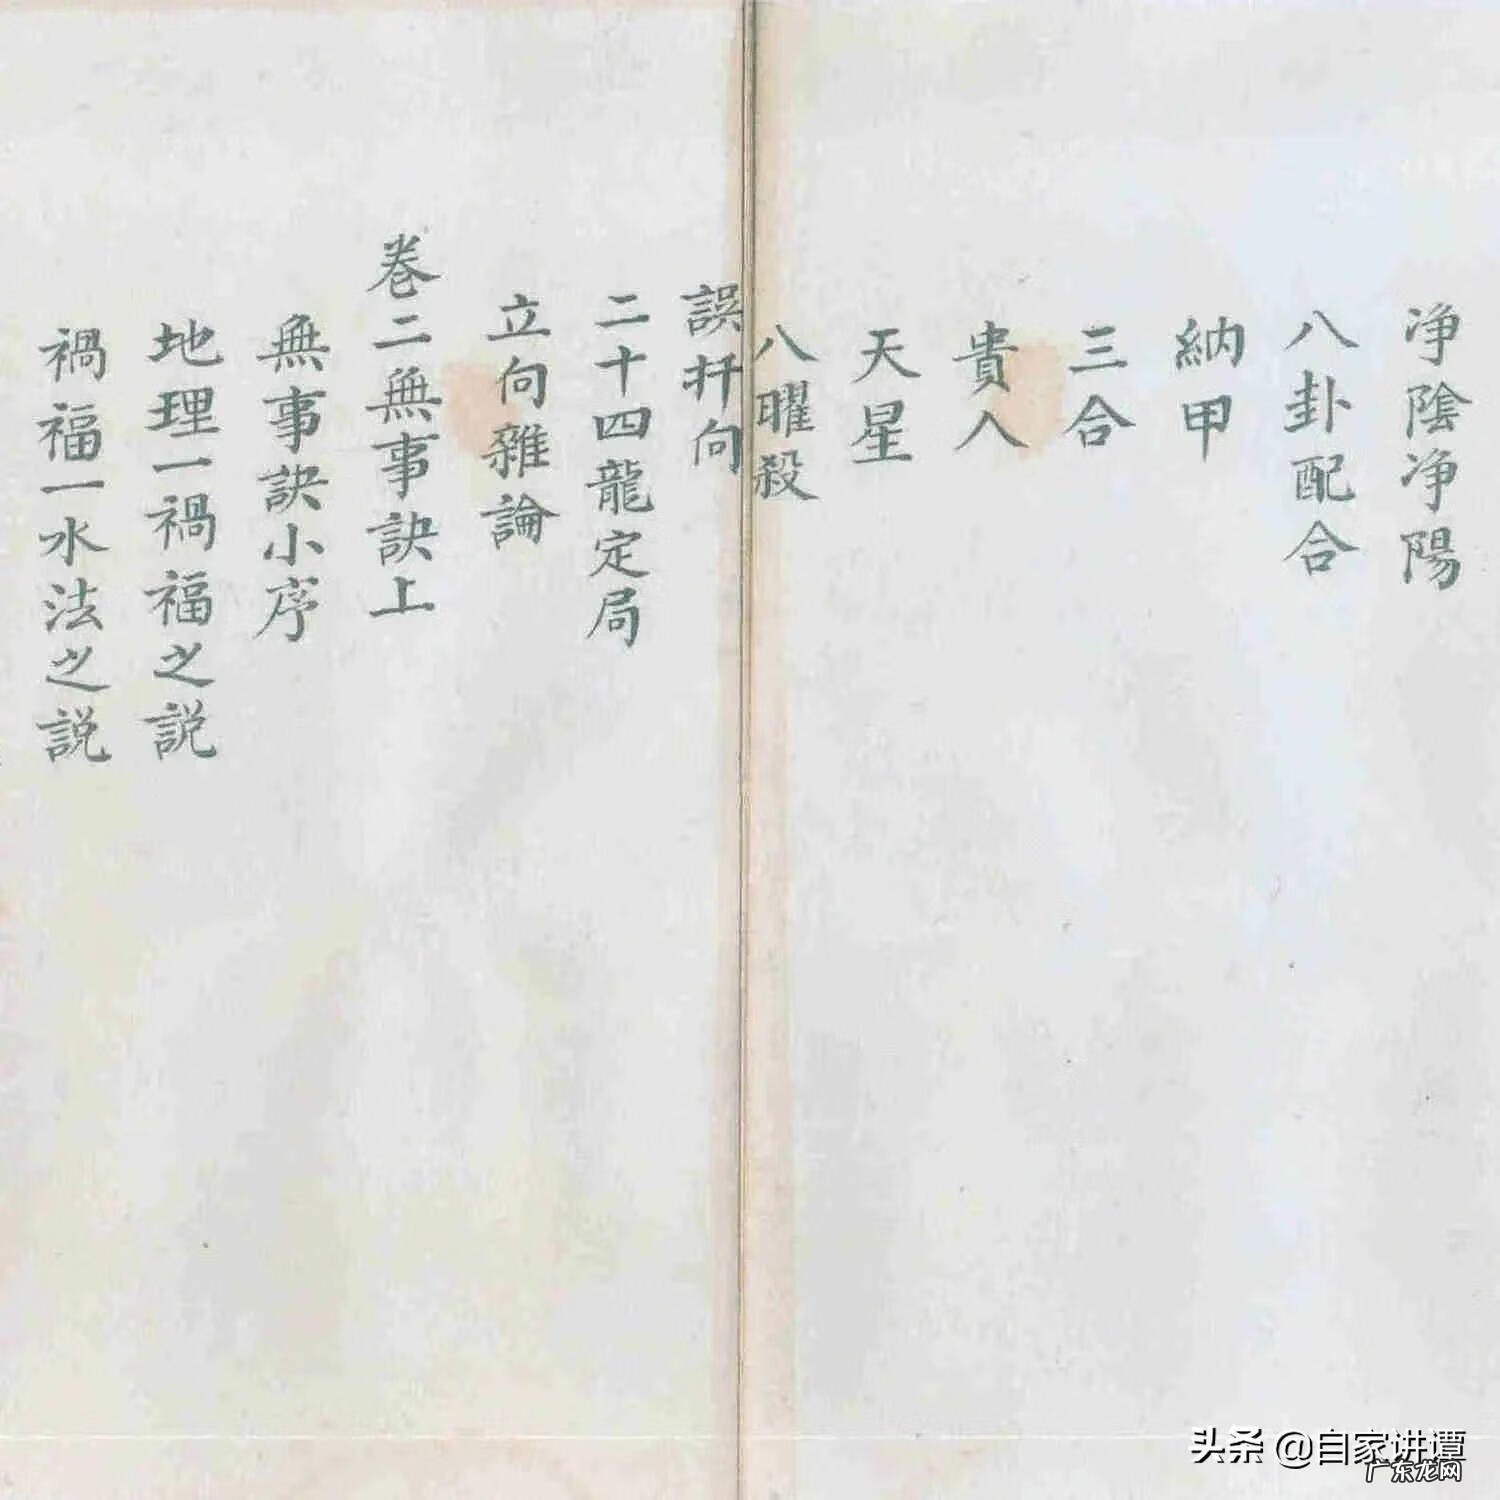 净陰净陽
八卦配合
納甲
三合
貴人
天星
八曜殺
誤扦向
二十四龍定局
立向雜論
卷二無事訣上
無事訣小序
地理一禍福之說
禍福一水法之說
头条 @自家讲谭
广东龙网